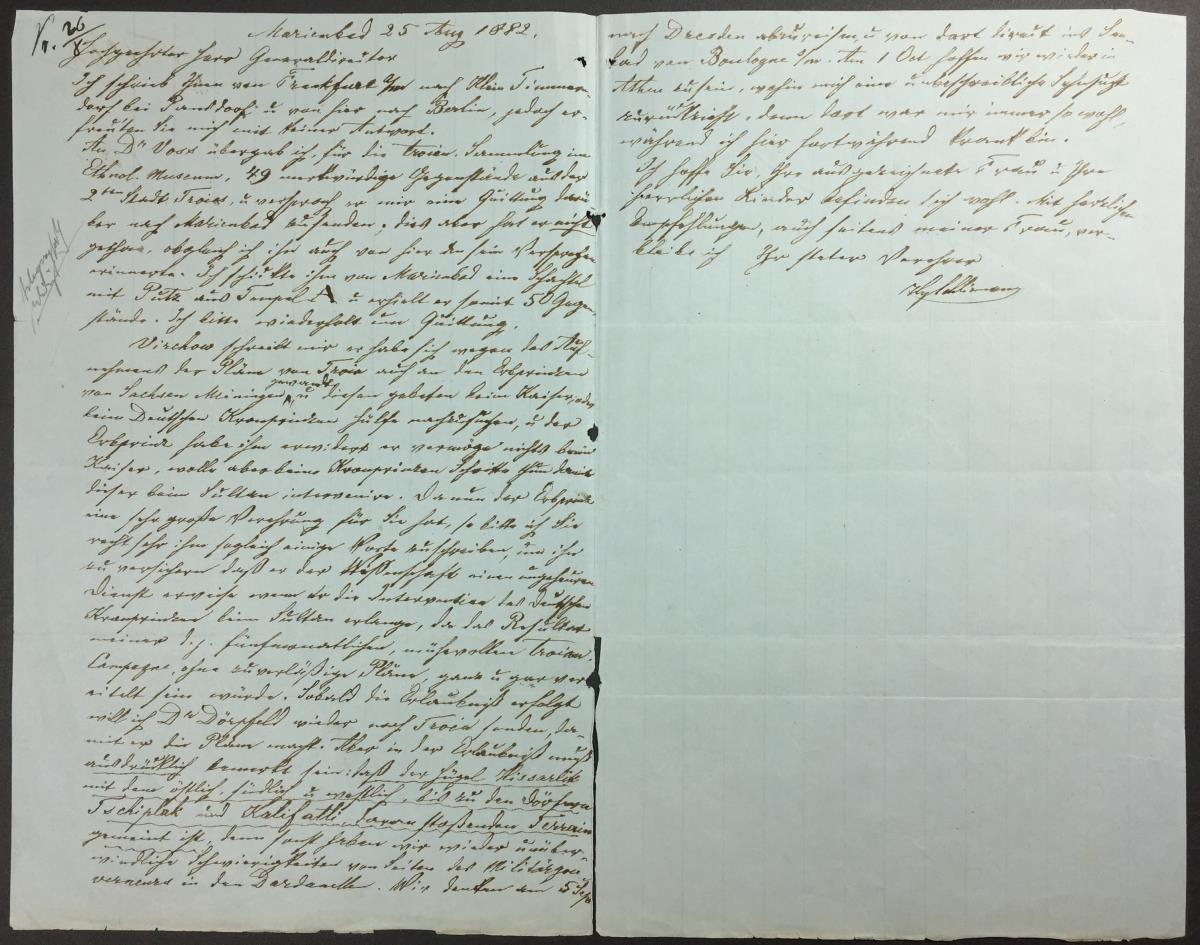 Marienbad 25 Aug 1882.
Hochgeehrter Herr Generaldirector
Ich schrieb Ihnen von Frankfurt a/m nach Klein Timmen-
dorf bei Pansdorf u von hier nach Berlin, jedoch er-
freuten Sie mich mit keiner Antwort.
An Dr Voss übergab ich, für die troian. Sammlung im
Ethnol. Museum, 49 merkwürdige Gegenstände aus der
2ten Stadt Troia, u versprach er mir eine Quittung darü
ber nach Marienbad zusenden, dies aber hat er nicht
gethan, obgleich ich ihn auch von hier an sein Versprechen
erinnerte. Ich schickte ihm von Marienbad eine Schachtel
mit Putz aus Tempel A u erhielt er somit 50 Gegen
stände. Ich bitte wiederholt um Quittung.
Virchow schreibt mir er habe sich wegen des Auf-
nehmens der Pläne von Troia auch an den Erbprinzen
von Sachsen Meiningen gewandt u diesen gebeten beim Kaiser oder
beim Deutschen Kronprinzen Hülfe nachzusuchen, u der
Erbprinz habe ihm erwidert er vermöge nichts beim
Kaiser, wolle aber beim Kronprinzen Schritte thun damit
dieser beim Sultan intervenire. Da nun der Erbprinz
eine sehr große Verehrung für Sie hat, so bitte ich Sie
recht sehr ihm sogleich einige Worte zuschreiben, um ihn
zu versichern daß er der Wissenschaft einen ungeheuren
Dienst erweise wenn er die Intervention des Deutschen
Kronprinzen beim Sultan erlange, da das Resultat
meiner d. j. fünfmonatlichen, mühevollen troian.
Campagne, ohne zuverläßige Pläne, ganz u gar ver
eitelt sein würde. Sobald die Erlaubniß erfolgt
will ich Dr Dörpfeld wieder nach Troia senden, da-
mit er die Pläne macht. Aber in der Erlaubniß muß
ausdrücklich bemerkt sein: daß der Hügel Hissarlik
mit dem östlich, südlich u westlich, bis zu den Dörfern
Tschiplak und Kalifatli daran stoßenden Terrain
gemeint ist, denn sonst haben wir wieder unüber-
windliche Schwierigkeiten von Seiten des Militärgou
verneurs in den Dardanellen. Wir denken am 5 Sep
nach Dresden abzureisen, u von dort direct ins See-
bad von Boulogne s/m. Am 1 Oct hoffen wir wieder in
Athen zu sein, wohin mich eine unbeschreibliche Sehnsucht
zurückzieht, denn dort war mir immer so wohl,
während ich hier fortwährend krank bin.
Ich hoffe Sie, Ihre ausgezeichnete Frau u Ihre
herrlichen Kinder befinden sich wohl. Mit herzlichen
Empfehlungen, auch seitens meiner Frau, ver-
bleibe ich Ihr steter Verehrer
HySchliemann